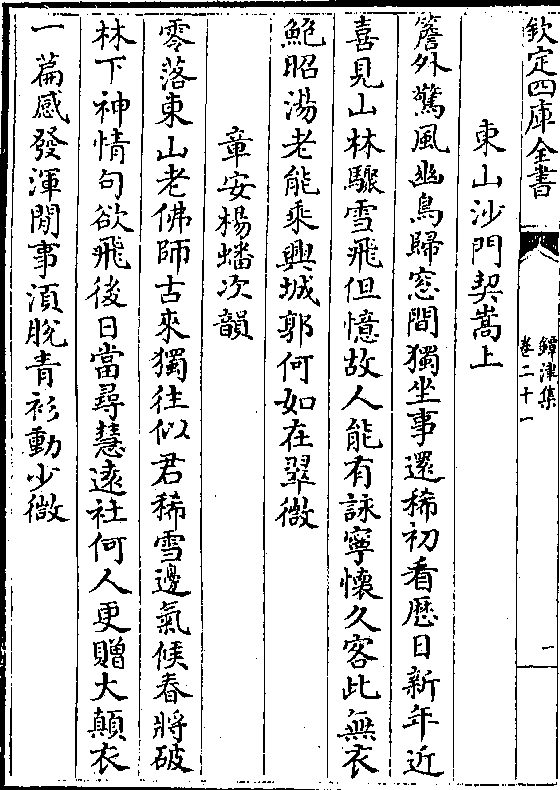 欽定四庫全書
鐔津集
卷二十一
一
東山沙門契嵩上
簷外驚風幽鳥歸窓間獨坐事還稀初看歴日新年近
喜見山林驟雪飛但憶故人能有詠寧懐久客此無衣
鮑昭湯老能乘興城郭何如在翠微
章安楊蟠次韻
零落東山老佛師古來獨往似君稀雪邊氣候春將破
林下神情句欲飛後日當尋慧逺社何人更贈大顛衣
一篇感發渾閒事湏脫青衫動少微